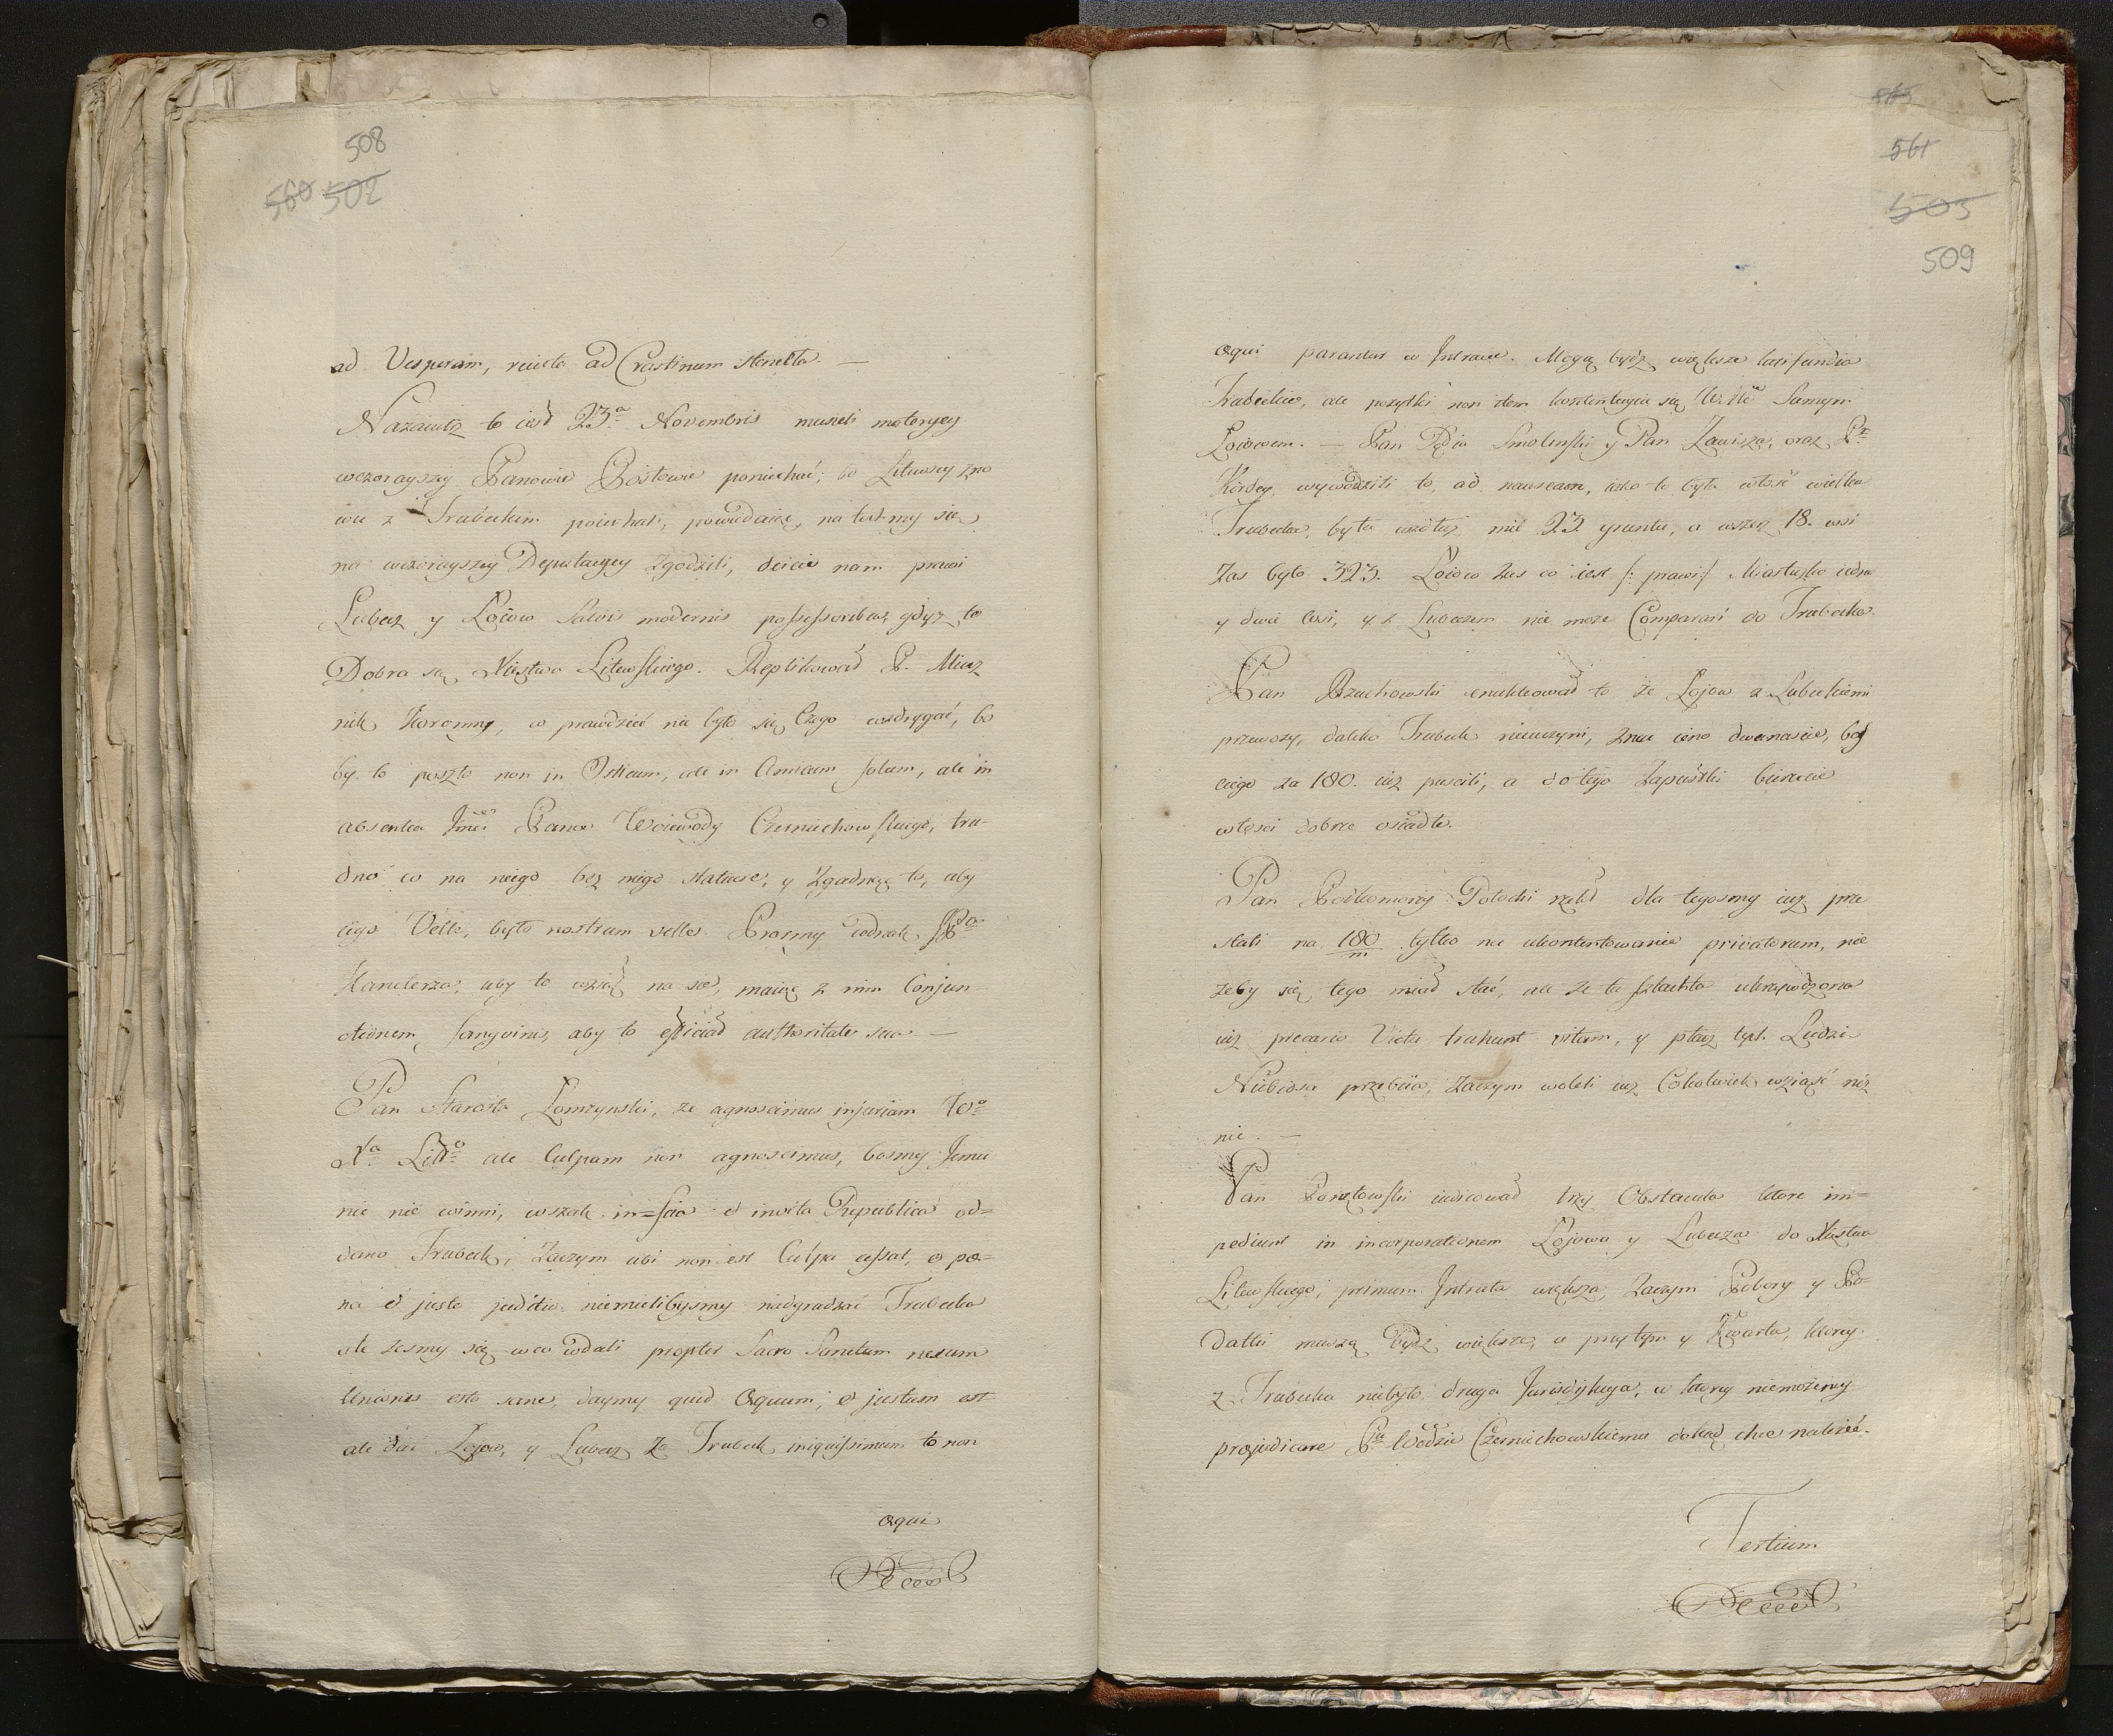 508
560 502
ad Vesperam, reiecta ad Crastinum stanęła. —
Nazaiutrz to iest 23.a Novembris musieli materyey
wczorayszey Panowie Posłowie poniechać, bo Litewscy zno
wu z Trubeckim poiechali, powiadaiąc, na tośmy się
na wczorayszey Deputacyey zgodzili, daicie nam prawi
Lubecz y Loiow salvis modernis possessoribus, gdyż to
Dobra są Xięstwa Litewskiego. Replikował P. Miecz
nik Koronny, co prawdziwie nie było się Czego wzdrygać, bo
by to poszło non in Osticum, ale in Amicum solum, ale in
absentia Jmci Pana Woiewody Czerniechowskiego, tru-
dno co na niego bez niego statuere, y Zgadnąć to, aby
iego Velle, było nostrum velle. Prosmy iednak Pa
Kanclerza, aby to wziął na się, maiąc z nim Conjun-
ctionem sanguinis, aby to efficiad authoritate sua —
Pan Starosta Lomzynski, ze agnoscimus injuriam Wo
Xa Litto ale Culpam non agnoscimus, bosmy Jemu
nic nie winni, wszak in=scia et invita Republica od=
dano Trubeck, Zaczym ubi non est Culpa cessat, et pæ=
na et justo juditio niemielibysmy nadgradzać Trubecka
ale zesmy się w co wdali propter Sacro Sanctum nexum
Unionis esto sane, daymy quid Æquum, et justum est
ale dać Lojow, y Lubecz Za Trubeck iniquissimum to non
æqui
565
561
503
509
æqui parantur w Intracie. Mogą bydz większe latifundia
Trubeckie, ale pożytki non item kontentuycie się Samym
Loiowem. — Pan Sędzia Smolenski y Pan Zawisza, oraz P.
Kirdey, wywodzili to, ad nauseam, iako to była włość wielka
Trubecka, była wzdłuż mil 23 gruntu, a wszerz 18. wsi
Zas było 323. Loiow zas co iest /: prawi :/ Miasteczko iedno
y dwie wsi, y z Lubeczem nie może Comparari do Trubecka.
Pan Brzuchowski enukleował to że Lojow z Lubeckiemi
przewozy, daleko Trubeck nieuczyni, znać ieno dwanascie,
ciego za 180. iuż puscili, a do tego Zapustki bierzecie
włości dobrze osiadłe.
Pan Podkomorzy Połocki rzekł dla tegosmy iuż prze
stali na 180/m tylko na ukontentowanie privatorum, nie
żeby się tego miał stać, ale ze ta szlachta ukrzywdzona
iuż precario Victu trahunt vitam, y płacz tych Ludzi
Niebiosa przebiia, Zaczym woleli iuż Cokolwiek wziąść niż
nic. —
Pan Poniętowski indicował trzy Obstacula ktore im=
pediunt in incorporationem Lojowa y Lubecza do Xięstwa
Litewskiego; primum Intrata większa, Zaczym Pobory y Po-
datki muszą bydz większe, a przytym y Kwarta, ktorey
z Trubecka niebyło, druga Jurisdykcya, w ktorey niemożemy
præjudicare Pu Wdzie Czerniechowskiemu dokąd chce należeć.
Tertium